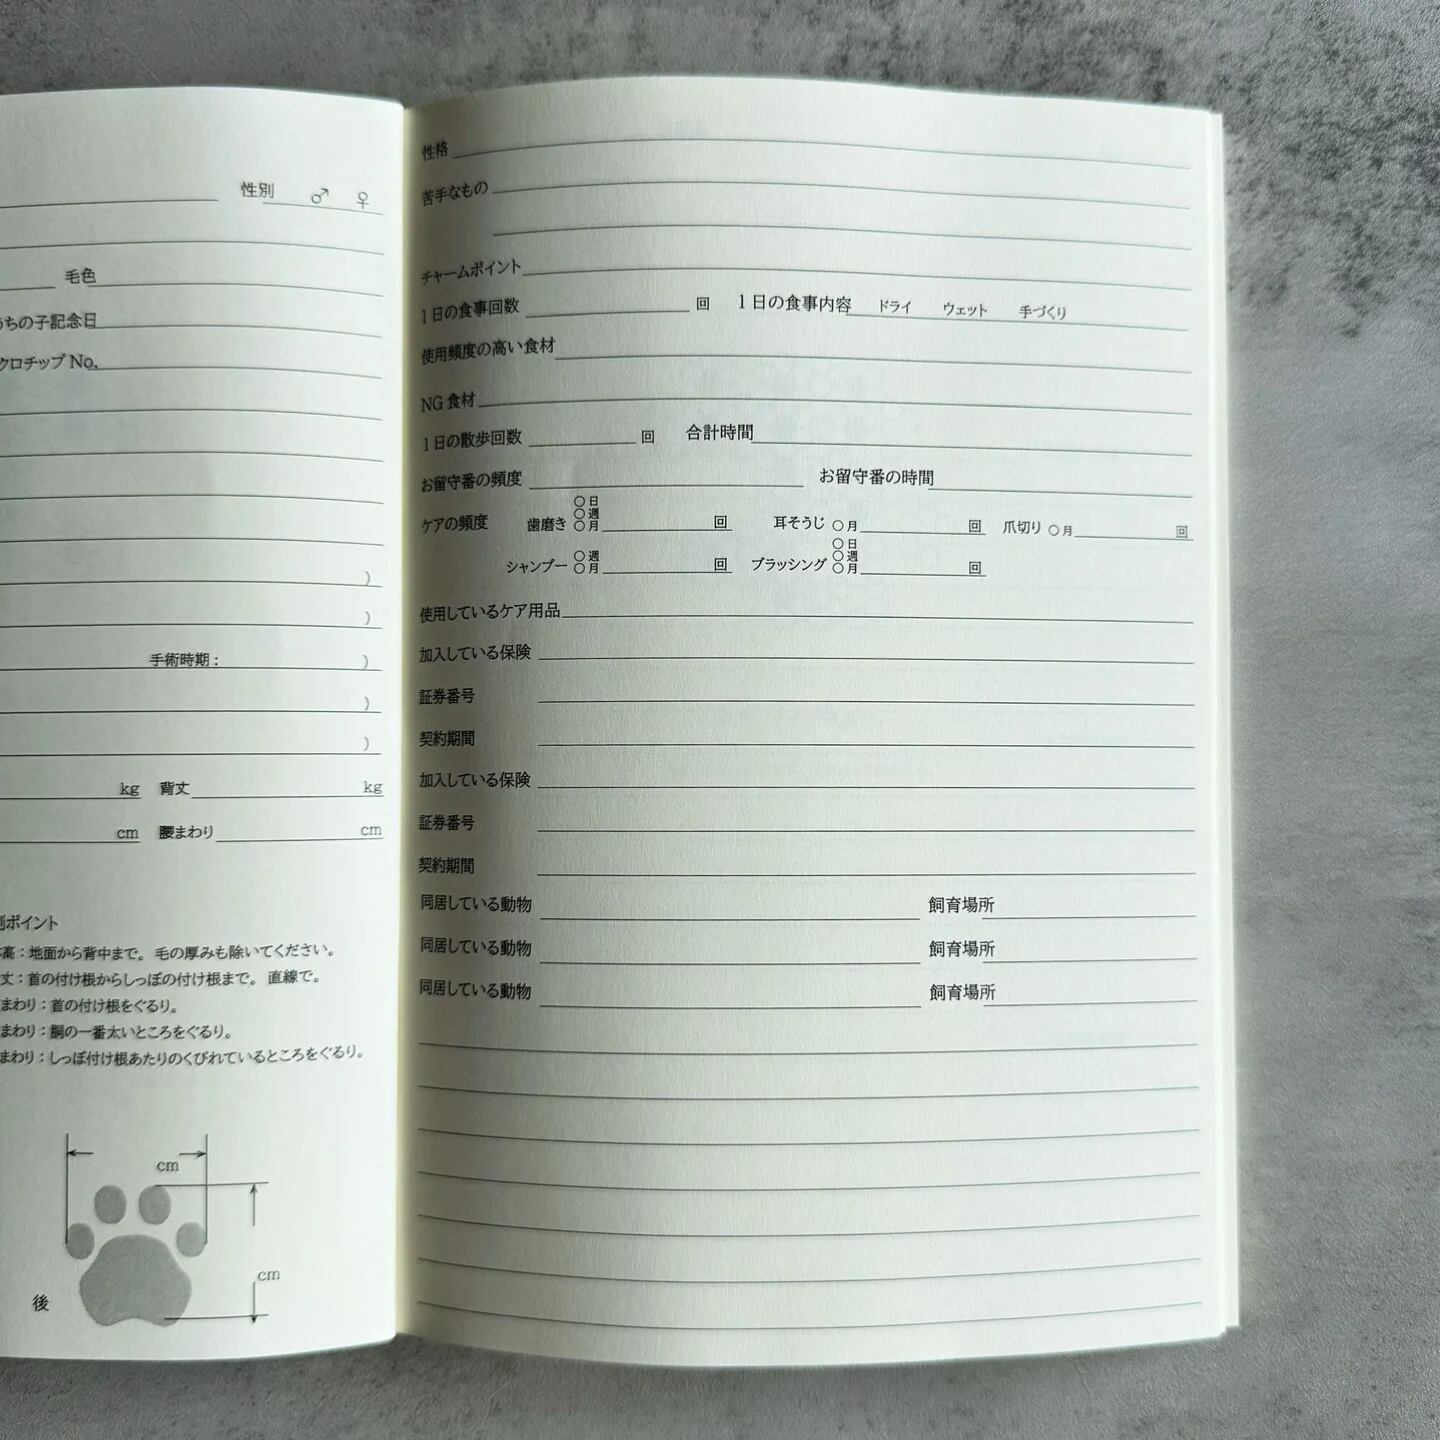 性別 ♂ ♀
毛色
うちの子記念日
クロチップ No.
)
)
手術時期 : )
)
)
kg 背丈 kg
cm 腰まわり cm
ポイント
高：地面から背中まで。毛の厚みも除いてください。
丈：首の付け根からしっぽの付け根まで。直線で。
まわり：首の付け根をぐるり。
まわり：胴の一番太いところをぐるり。
まわり：しっぽ付け根あたりのくびれているところをぐるり。
cm
cm
後
性格
苦手なもの
チャームポイント
1日の食事回数 回 1日の食事内容 ドライ ウェット 手づくり
使用頻度の高い食材
NG 食材
1日の散歩回数 回 合計時間
お留守番の頻度 お留守番の時間
ケアの頻度 歯磨き ○日 ○週 ○月 回 耳そうじ ○月 回 爪切り ○月 回
シャンプー ○週 ○月 回 ブラッシング ○日 ○週 ○月 回
使用しているケア用品
加入している保険
証券番号
契約期間
加入している保険
証券番号
契約期間
同居している動物 飼育場所
同居している動物 飼育場所
同居している動物 飼育場所